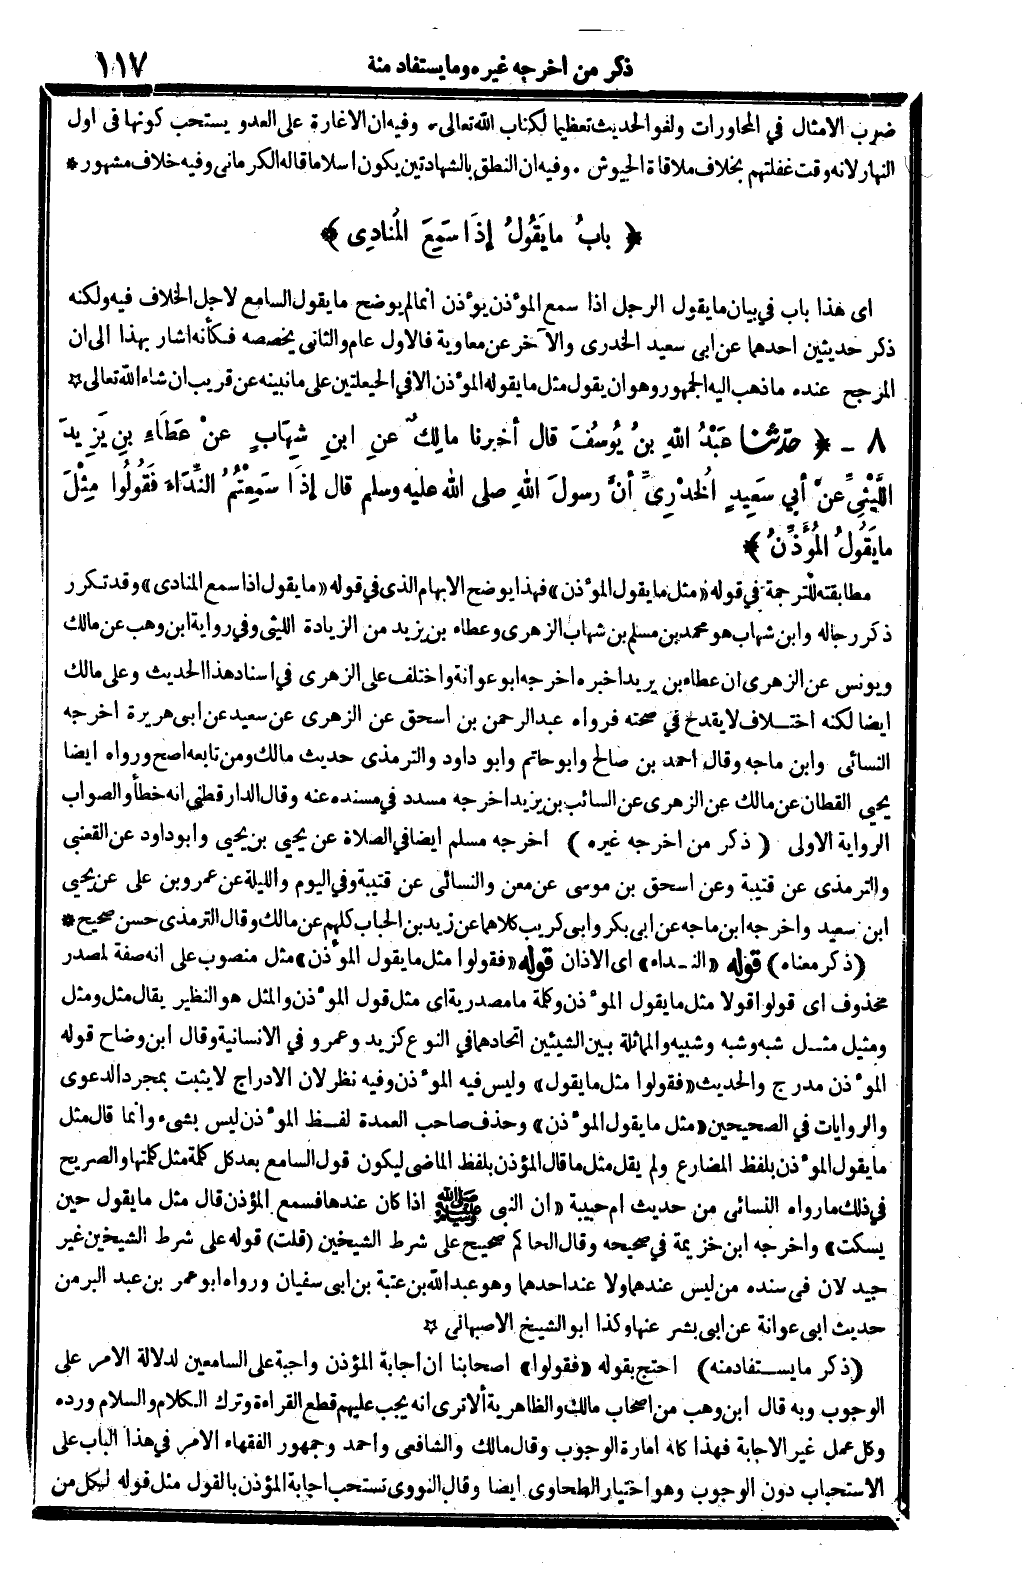 ذكر من اخرجه غيره وما يستفاد منه ١١٧
ضرب الامثال في المحاورات ولغو الحديث تعظيما لكتاب الله تعالى. وفيه ان الاغارة على العدو يستحب كونها فى اول
النهار لانه وقت غفلتهم بخلاف ملاقاة الجيوش . وفيه ان النطق بالشهادتين يكون اسلاما قاله الكرمانى وفيه خلاف مشهور *
﴿ بابُ ما يَقُولُ إذَا سَمِعَ المُنادِى ﴾
اى هذا باب في بيان ما يقول الرجل اذا سمع المؤذن يؤذن انما لم يوضح ما يقول السامع لاجل الخلاف فيه ولكنه
ذكر حديثين احدهما عن ابى سعيد الخدرى والآخر عن معاوية فالاول عام والثانى يخصصه فكأنه اشار بهذا الى ان
المرجح عنده ما ذهب اليه الجمهور وهو ان يقول مثل ما يقوله المؤذن الا في الحيعلتين على ما نبينه عن قريب ان شاء الله تعالى ☆
٨ - ﴿ حدّثنا عَبْدُ اللهِ بنُ يُوسُفَ قال أخبرنا مالِكٌ عنِ ابنِ شِهَابٍ عنْ عَطَاءِ بنِ يَزِيدَ
اللَّيْثِىِّ عنْ أبي سَعِيدٍ الخُدْرِىِّ أنَّ رسولَ اللهِ صلى الله عليه وسلم قال إذَا سَمِعْتُمُ النِّدَاءَ فَقُولُوا مِثْلَ
ما يَقُولُ المُؤَذِّنُ ﴾
مطابقته للترجمة في قوله «مثل ما يقول المؤذن» فهذا يوضح الابهام الذى في قوله «ما يقول اذا سمع المنادى» وقد تكرر
ذكر رجاله وابن شهاب هو محمد بن مسلم بن شهاب الزهرى وعطاء بن يزيد من الزيادة الليثى وفي رواية ابن وهب عن مالك
ويونس عن الزهرى ان عطاء بن يزيد اخبره اخرجه ابو عوانة واختلف على الزهرى في اسناد هذا الحديث وعلى مالك
ايضا لكنه اختـلاف لا يقدح في صحته فرواه عبد الرحمن بن اسحق عن الزهرى عن سعيد عن ابى هريرة اخرجه
النسائى وابن ماجه وقال احمد بن صالح وابو حاتم وابو داود والترمذى حديث مالك ومن تابعه اصح ورواه ايضا
يحيي القطان عن مالك عن الزهرى عن السائب بن يزيد اخرجه مسدد في مسنده عنه وقال الدارقطني انه خطأ والصواب
الرواية الاولى ( ذكر من اخرجه غيره ) اخرجه مسلم ايضا في الصلاة عن يحيي بن يحيي وابو داود عن القعنبى
والترمذى عن قتيبة وعن اسحق بن موسى عن معن والنسائى عن قتيبة وفي اليوم والليلة عن عمرو بن على عن يحيي
ابن سعيد واخرجه ابن ماجه عن ابى بكر وابى كريب كلاهما عن زيد بن الحباب كلهم عن مالك وقال الترمذى حسن صحيح *
(ذكر معناه) قوله «النـداء» اى الاذان قوله «فقولوا مثل ما يقول المؤذن» مثل منصوب على انه صفة لمصدر
محذوف اى قولوا قولا مثل ما يقول المؤذن وكلمة ما مصدرية اى مثل قول المؤذن والمثل هو النظير يقال مثل ومثل
ومثيل مثـل شبه وشبه وشبيه والمماثلة بين الشيئين اتحادهما في النوع كزيد وعمرو في الانسانية وقال ابن وضاح قوله
المؤذن مدرج والحديث «فقولوا مثل ما يقول» وليس فيه المؤذن وفيه نظر لان الادراج لا يثبت بمجرد الدعوى
والروايات في الصحيحين «مثل ما يقول المؤذن» وحذف صاحب العمدة لفـظ المؤذن ليس بشىء وانما قال مثل
ما يقول المؤذن بلفظ المضارع ولم يقل مثل ما قال المؤذن بلفظ الماضى ليكون قول السامع بعد كل كلمة مثل كلمتها والصريح
في ذلك ما رواه النسائى من حديث ام حبيبة «ان النبى ﷺ اذا كان عندها فسمع المؤذن قال مثل ما يقول حين
يسكت» واخرجه ابن خزيمة في صحيحه وقال الحاكم صحيح على شرط الشيخين (قلت) قوله على شرط الشيخين غير
جيد لان فى سنده من ليس عندهما ولا عند احدهما وهو عبد الله بن عتبة بن ابى سفيان ورواه ابو عمر بن عبد البر من
حديث ابى عوانة عن ابى بشر عنها وكذا ابو الشيخ الاصبهانى ☆
(ذكر ما يسـتفاد منه) احتج بقوله «فقولوا» اصحابنا ان اجابة المؤذن واجبة على السامعين لدلالة الامر على
الوجوب وبه قال ابن وهب من اصحاب مالك والظاهرية ألا ترى انه يجب عليهم قطع القراءة وترك الكلام والسلام ورده
وكل عمل غير الاجابة فهذا كله امارة الوجوب وقال مالك والشافعى واحمد وجمهور الفقهاء الامر في هذا الباب على
الاستحباب دون الوجوب وهو اختيار الطحاوى ايضا وقال النووى تستحب اجابة المؤذن بالقول مثل قوله لكل من